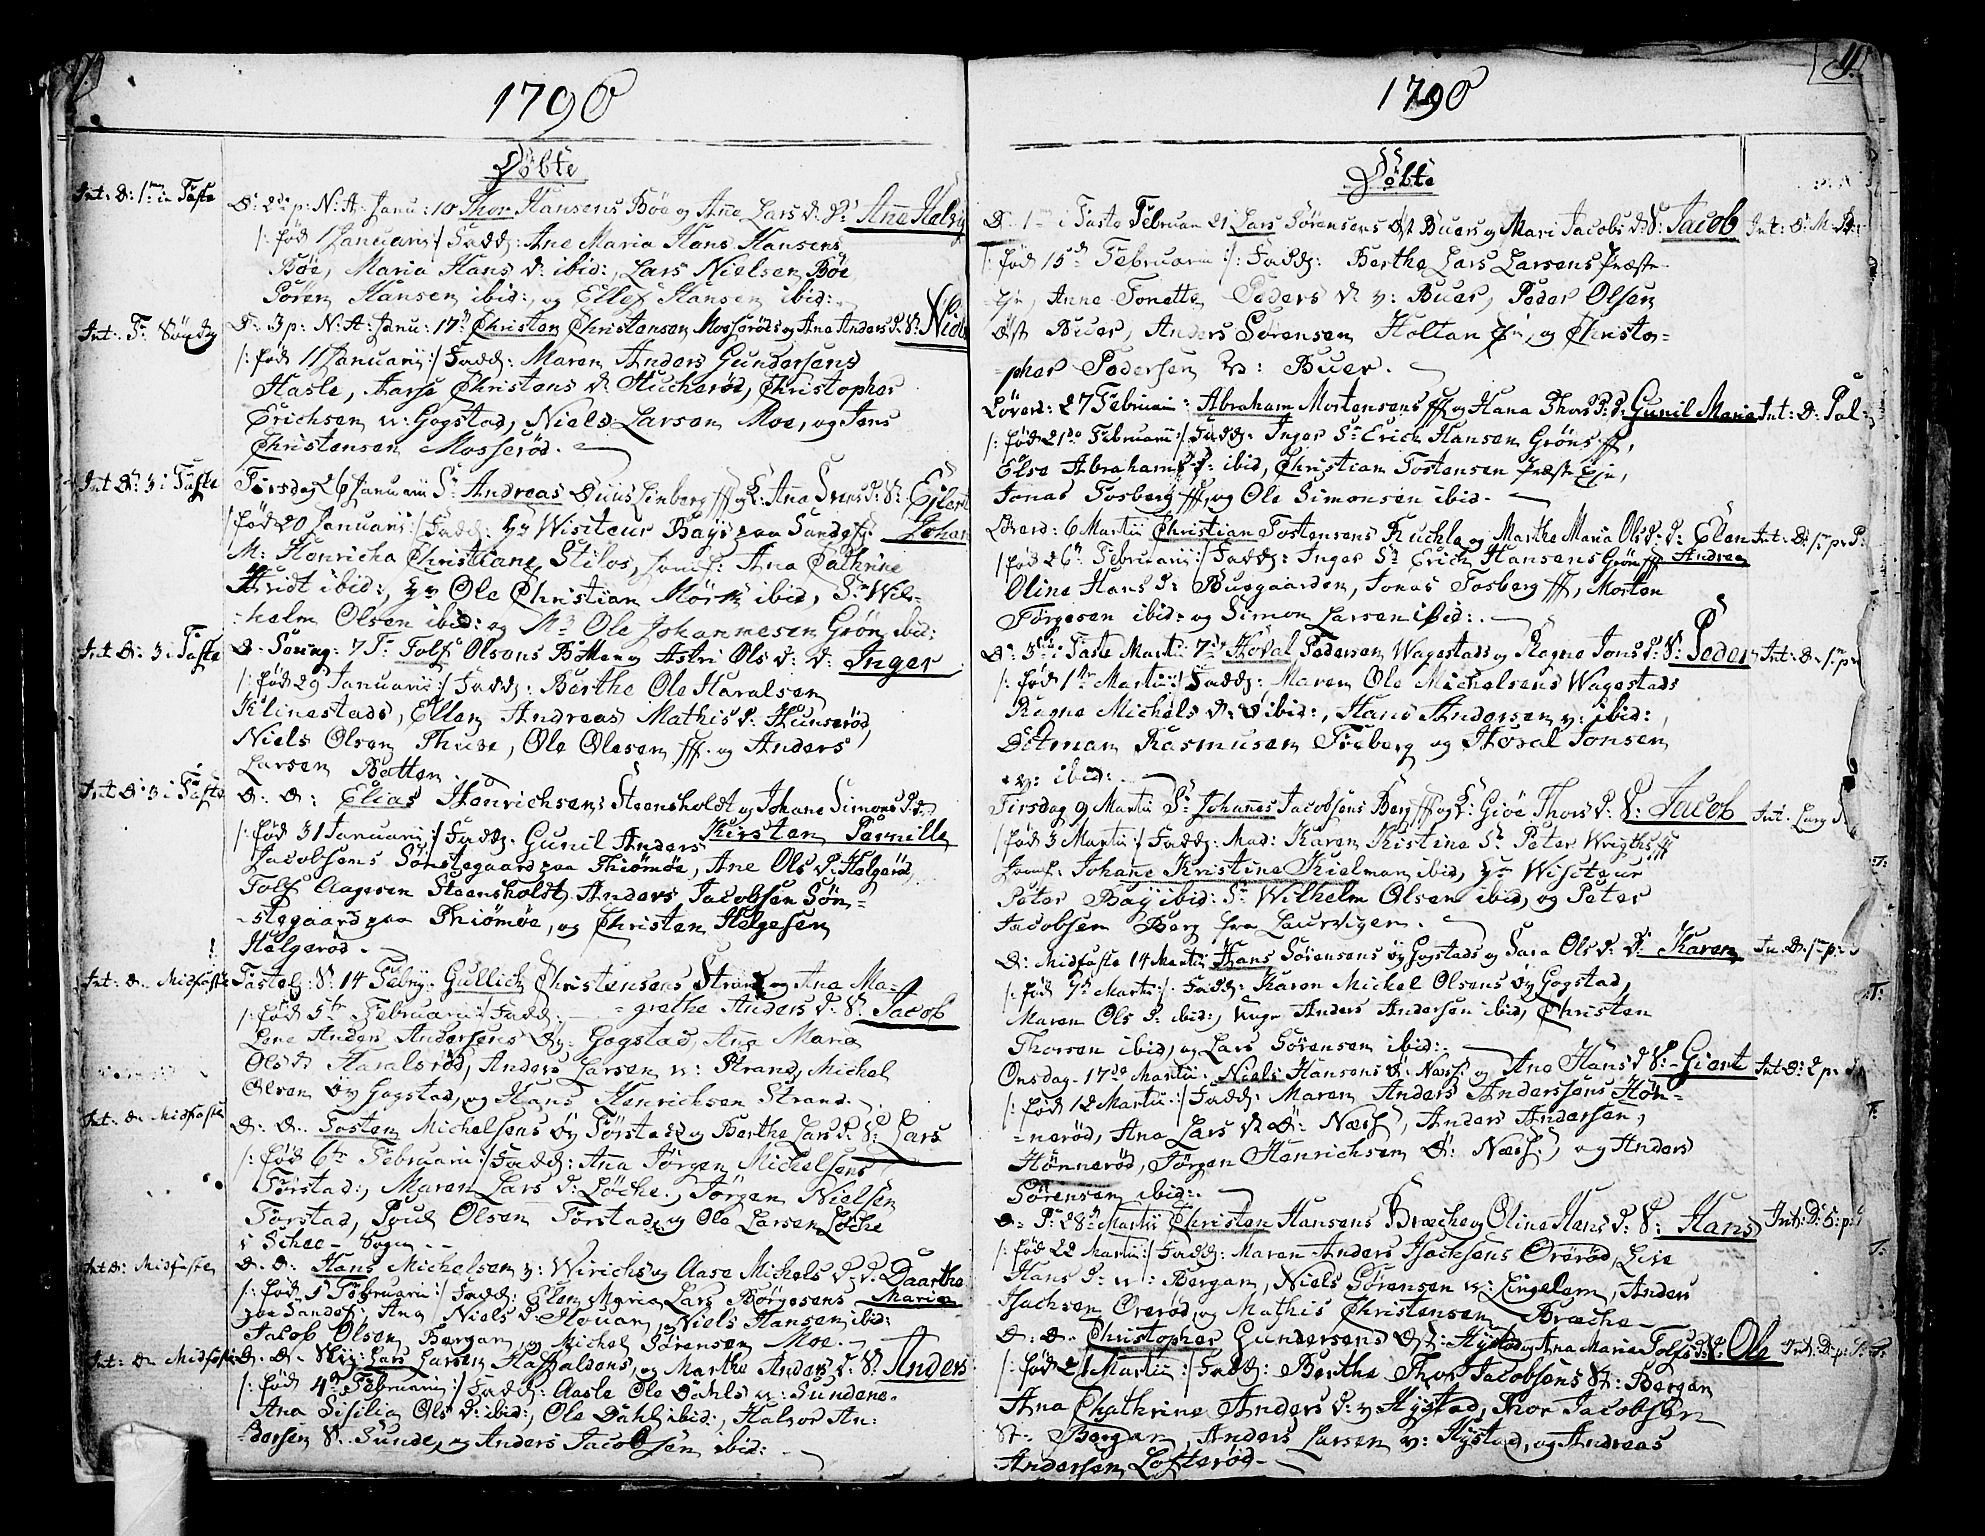 1790
Döbte
Int: D: 1ma i Faste
D: 2de p: N: A: Janu: 10 Thor Hansens Böe og Ane Lars d: D: Anne Helvig
/: föd 1 Januarii :/ Fadd: Ane Maria Hans Hansens
Böe, Maria Hans d: ibid:, Lars Nielsen Böe
Sören Hansen ibid:, og Ellef Hansen ibid:
Int: F: Söndag
D: 3 p: N: A: Janu: 17de Christen Christensen Mosseröds og Ane Anders d: S: Niels
/: föd 11 Januarii :/ Fadd: Maren Anders Gundersens
Hasle, Christens d: Hucheröd, Christopher
Erichsen v: Gogstad, Niels Larsen Moe, og Jens
Christensen Mosseröd.
Int: D: 3 i Faste
Tirsdag 26 Januarii Sr Andreas Linberg og Ana d: S: Ejlert
/: föd 20 Januarii :/ Fadd: Hr Wisiteur Bays paa Sandef: Johan
M: Henricha Christiane Stilos, Jomf: Ana Cathrine
ibid:, Hr Ole Christian Mörk ibid, Sr Wil-
-helm Olsen ibid: og Mr Ole Johannesen Grön ibid:
Int: D: 3 i Faste
D: 7 F: Tolf Olsens Botten og Astri Ols d: D: Inger
/: föd 29 Januarii :/ Fadd: Berthe Ole Haralsen
Klinestads, Ellen Andreas Mathis d: Hunseröd,
Niels Olsen Thuve, Ole Olesen ff. og Anders
Larsen Botten.
Int: D: 3 i Faste
D: D: Elias Henrichsens Steensholdt og Johane Simons d: D:
/: föd 31 Januarii :/ Fadd: Gunil Anders Kirsten Pernille
Jacobsens Sönstegaard paa Thiömöe, Ane Ols d: Helgeröd,
Tolf Aagesen Steensholdt, Anders Jacobsen Sön-
-stegaard paa Thiömöe, og Christen Helgesen
Helgeröd.
Int: D: Midfaste
Fastel: S: 14 Febry: Gullich Christensens Strand og Ane Ma-
/: föd 5te Februarii :/ Fadd: -grethe Anders d: S: Jacob
Lene Anders Andersens öy: Gogstad, Ana Maria
Ols d: Haralsröd, Anders Larsen v: Strand, Michel
Olsen öy Gogstad, og Hans Henrichsen Strand.
Int: D: Midfaste
D: D: Tosten Michelsens öy Törstad og Berthe Lars d: S: Lars
/: föd 6te Februarii :/ Fadd: Ana Jörgen Michelsens
Törstad, Maren Lars d: Löche, Jörgen Nielsen
Törstad, Poul Olsen Törstad og Ole Larsen Löche
i Schee-Sogn.
Int: D: Midfaste
D: D: Hans Michelsen v: Wirichs og Aase Michels d: D: Daarthe
/: föd 5 Februarii :/ Fadd: Elen Maria Lars Börgesens Maria
paa Sandef: Ana Niels d: Houan, Niels Hansen ibid:
Jacob Olsen Bergan, og Michel Sörensen Moe.
Int: D: Midfaste
D: D: Lars Larsen Haffalsens, og Marthe Anders d: S: Anders
/: föd 4de Februarii :/ Fadd: Aasle Ole Dahls v: Sundene.
Ana Sisilia Ols d: ibid:, Ole Dahl ibid:, Halvor An:
-dersen S: Sunde, og Anders Jacobsen ibid:
1790
Döbte
D: 1ma i Faste Februar: 21 Lars Sörensens öst Buers og Mari Jacobs d: S: Jacob
/: föd 15de Februarii :/: Fadd: Berthe Lars Larsens Præste-
Eje, Anne Tonette Peders d: v: Buer, Peder Olsen
öst Buer, Anders Sörensen Holtan Eje, og Christo-
-pher Pedersen v: Buer.
Löverd: 27 Februarii: Abraham Mortensens ff og Hana Thors d: D: Gunil Maria Int: D: Pal:
/: föd 21de Februarii :/ Fadd: Inger Sr Erich Hansen Gröns ff,
Else Abrahams d: ibid, Christian Tostensen Præste Eje,
Jonas Fosberg ff, og Ole Simonsen ibid.
Löverd: 6 Martii Christian Tostensens Kuchla og Marthe Maria Ols d: D: Elen Int: D: 1ma p: P:
/: föd 26de Februarii :/ Fadd: Inger Sr Erich Hansens Grön ff Andrea
Oline Hans d: Buegaarden, Jonas Fosberg ff, Morten
Jörgesen ibid: og Simon Larsen ibid:.
D: 3die i Faste Martii 7de Hoval Pedersen Wagestads og Ragne Jons d: S: Peder Int: D: 1ma p:
/: föd 1ste Martii :/ Fadd: Maren Ole Michelsens Wagestads
Ragne Michels d: ibid:, Hans Andersen v: ibid:,
Detman Rasmusen Freberg og Hoval Jonsen
v: ibid:.
Tirsdag 9 Martii Sr Johannes Jacobsens Berg ff og Giöe Thors d: S: Jacob
/: föd 3 Martii :/ Fadd: Mad: Karen Kistine Sr Peter Wrigths ff
Jomf: Johane Kristine Kielman ibid, Hr Wisiteur
Peter Bay ibid: Sr Wilhelm Olsen ibid, og Peter
Jacobsen Berg fra Laurvigen.
D: Midfaste 14 Martii Hans Sörensens öy Gogstads og Sara Ols d: D: Karen
/: föd 7de Martii :/. Fadd: Karen Michel Olsens öy Gogstad,
Maren Ols d: ibid:, Anders Andersen ibid, Christen
Thorsen ibid, og Lars Sörensen ibid:.
Onsdag 17de Martii: Niels Hansens ö: Næss og Ane Hans d: S: Giert Int: D: 2 p:
/: föd 12 Martii :/ Fadd: Maren Anders Anderssens Hön-
-neröd, Ana Lars d: Ö: Næss, Anders Andersen,
Hönneröd, Jörgen Henrichsen Ö: Næss, og Anders
Sörensen ibid:.
D: P: 28de Martii Christen Hansens Bræche og Oline Hans d: S: Hans Int: D: 5: p:
/: föd 22 Martii :/ Fadd: Maren Anders Isachsens Oreröd, Live
Hans d: v: Bergan, Niels Sörensen v: Lingelem, Anders
Isachsen Oreröd og Mathis Christensen Bræche
D: D: Christopher Gundersens öst: Hystad og Ana Maria Tolfs d: S: Ole
/: föd 21 Martii :/ Fadd: Berthe Thor Jacobsens St: Bergan
Ana Chathrine Anders d: v: Hystad, Thor Jacobsen
St: Bergan, Anders Larsen v: Hystad, og Andreas
Andersen Löfteröd.